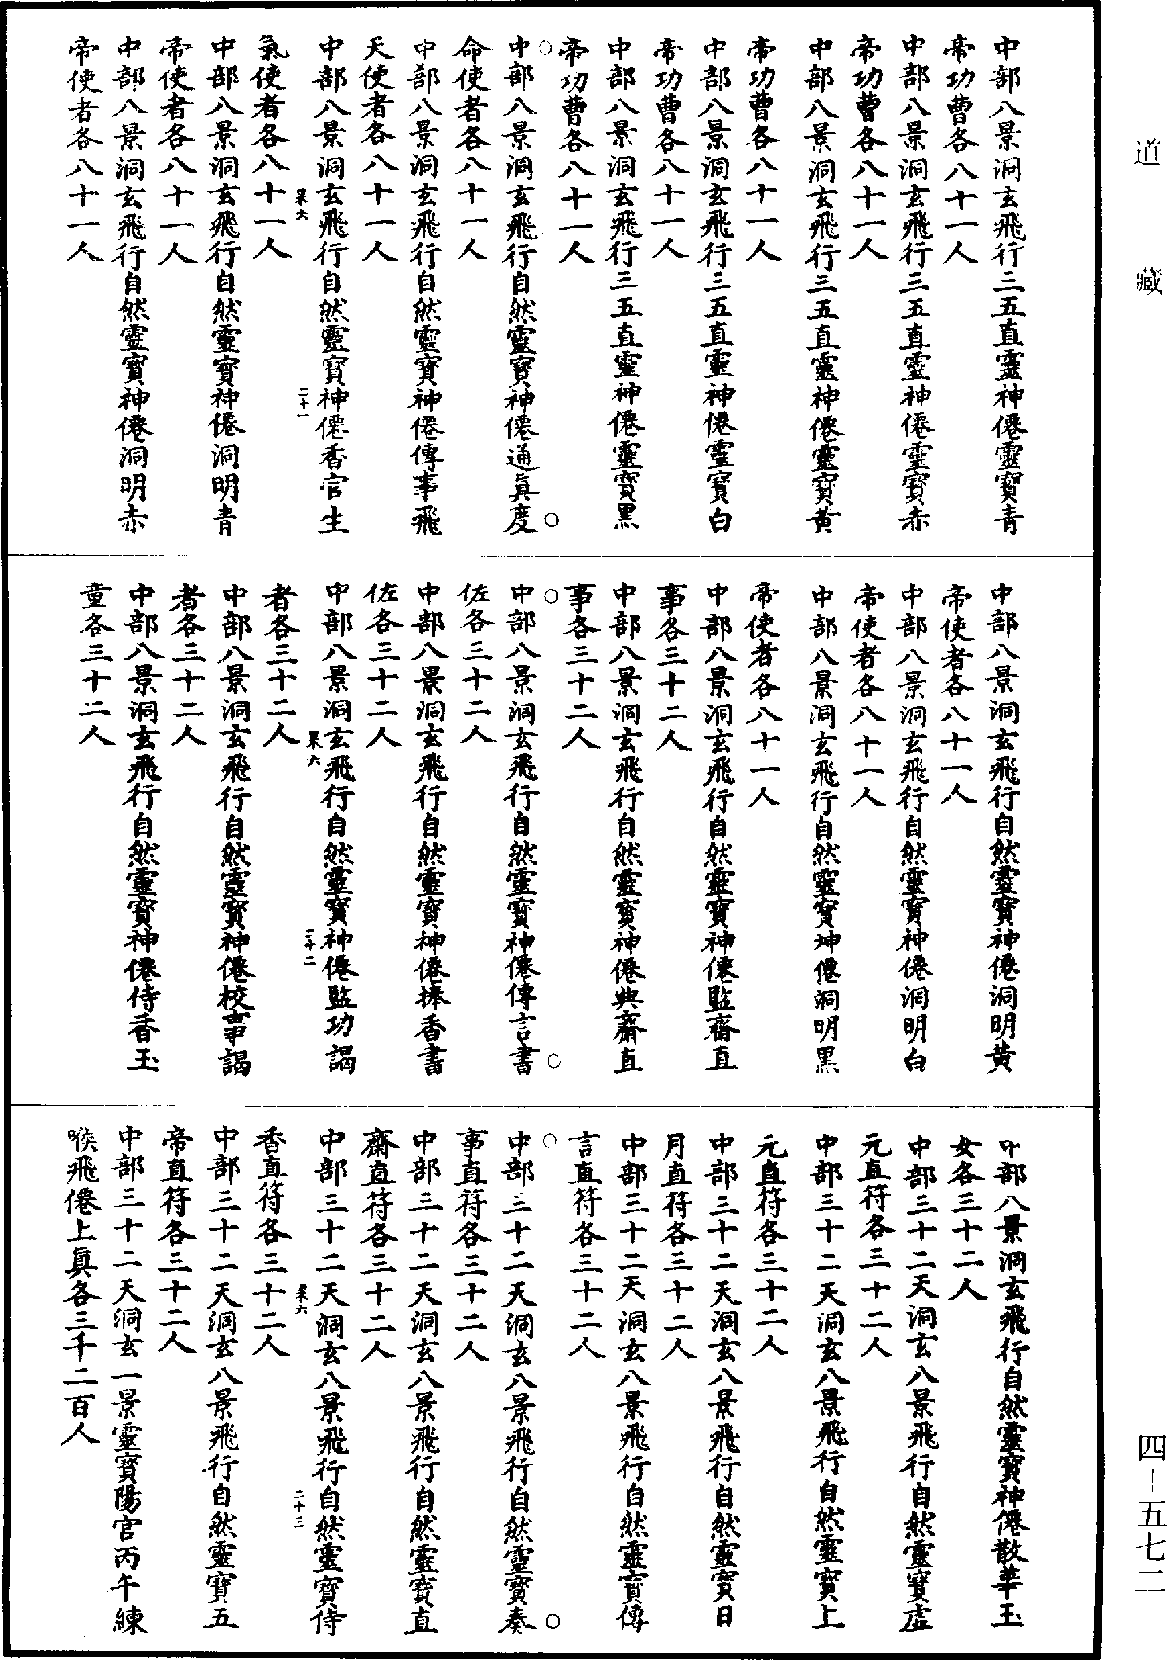 中部八景洞玄飛行三五直靈神僊靈寶青
帝功曹各八十一人
中部八景洞玄飛行三五直靈神僊靈寶赤
帝功曹各八十一人
中部八景洞玄飛行三五直靈神僊靈寶黃
帝功曹各八十一人
中部八景洞玄飛行三五直靈神僊靈寶白
帝功曹各八十一人
中部八景洞玄飛行三五直靈神僊靈寶黑
帝功曹各八十一人
○中部八景洞玄飛行自然靈寶神僊通真度○
命使者各八十一人
中部八景洞玄飛行自然靈寶神僊傳事飛
天使者各八十一人
中部八景洞玄飛行自然靈寶神僊香官生
杲六 二十一
氣使者各八十一人
中部八景洞玄飛行自然靈寶神僊洞明青
帝使者各八十一人
中部八景洞玄飛行自然靈寶神僊洞明赤
帝使者各八十一人
中部八景洞玄飛行自然靈寶神僊洞明黃
帝使者各八十一人
中部八景洞玄飛行自然靈寶神僊洞明白
帝使者各八十一人
中部八景洞玄飛行自然靈寶神僊洞明黑
帝使者各八十一人
中部八景洞玄飛行自然靈寶神僊監齋直
事各三十二人
中部八景洞玄飛行自然靈寶神僊典齋直
事各三十二人
○中部八景洞玄飛行自然靈寶神僊傳言書○
佐各三十二人
中部八景洞玄飛行自然靈寶神僊捧香書
佐各三十二人
中部八景洞玄飛行自然靈寶神僊監功謁
杲六 二十二
者各三十二人
中部八景洞玄飛行自然靈寶神僊校事謁
者各三十二人
中部八景洞玄飛行自然靈寶神僊侍香玉
童各三十二人
中部八景洞玄飛行自然靈寶神僊散華玉
女各三十二人
中部三十二天洞玄八景飛行自然靈寶虛
元直符各三十二人
中部三十二天洞玄八景飛行自然靈寶上
元直符各三十二人
中部三十二天洞玄八景飛行自然靈寶日
月直符各三十二人
中部三十二天洞玄八景飛行自然靈寶傳
言直符各三十二人
○中部三十二天洞玄八景飛行自然靈寶奏○
事直符各三十二人
中部三十二天洞玄八景飛行自然靈寶直
齋直符各三十二人
中部三十二天洞玄八景飛行自然靈寶侍
杲六 二十三
香直符各三十二人
中部三十二天洞玄八景飛行自然靈寶五
帝直符各三十二人
中部三十二天洞玄一景靈寶陽宮丙午練
喉飛僊上真各三千二百人
道藏
四－五七二